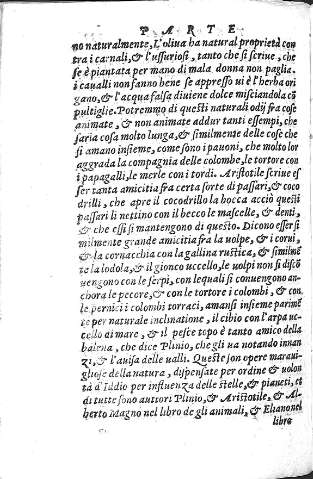 PARTE
no naturalmente, L'oliua ha natural proprietà con
tra i carnali, & l'ussuriosi, tanto che si scriue, che
se è piantata per mano di mala donna non paglia.
i caualli non fanno bene se appresso ui è l'herba ori
gano, & l'acqua falsa diuiene dolce mistiandola cõ
pultiglie. Potremmo di questi naturali odij fra cose
animate, & non animate addur tanti essempi, che
saria cosa molto lunga, & similmente delle cose che
si amano insieme, come sono i pauoni, che molto lor
aggrada la compagnia delle colombe, le tortore con
i papagalli, le merle con i tordi. Aristotile scriue es
ser tanta amicitia fra certa sorte di passari, & coco
drilli, che apre il cocodrillo la bocca acciò questi
passari li nettino con il becco le mascelle, & denti,
& che essi si mantengono di questo. Dicono esser si
milmente grande amicitia fra la uolpe, & i corui,
& la cornacchia con la gallina rustica, & similmē
te la lodola, & il gionco uccello, le uolpi non si discõ
uengono con le serpi, con le quali si conuengono an-
chora le pecore, & con le tortore i colombi, & con
le pernici i colombi torraci, amansi insieme parimē
te per naturale inclinatione, il cibio con l'arpa uc-
cello di mare, & il pesce topo è tanto amico della
balena, che dice Plinio, che gli ua notando innan
zi, & l'auisa delle ualli. Queste son opere maraui-
gliose della natura, dispensate per ordine & uolon
tà d'Iddio per influenza delle stelle, & pianeti, et
di tutte sono auttori Plinio, & Aristotile, & Al-
berto Magno nel libro de gli animali, & Eliano nel
libro